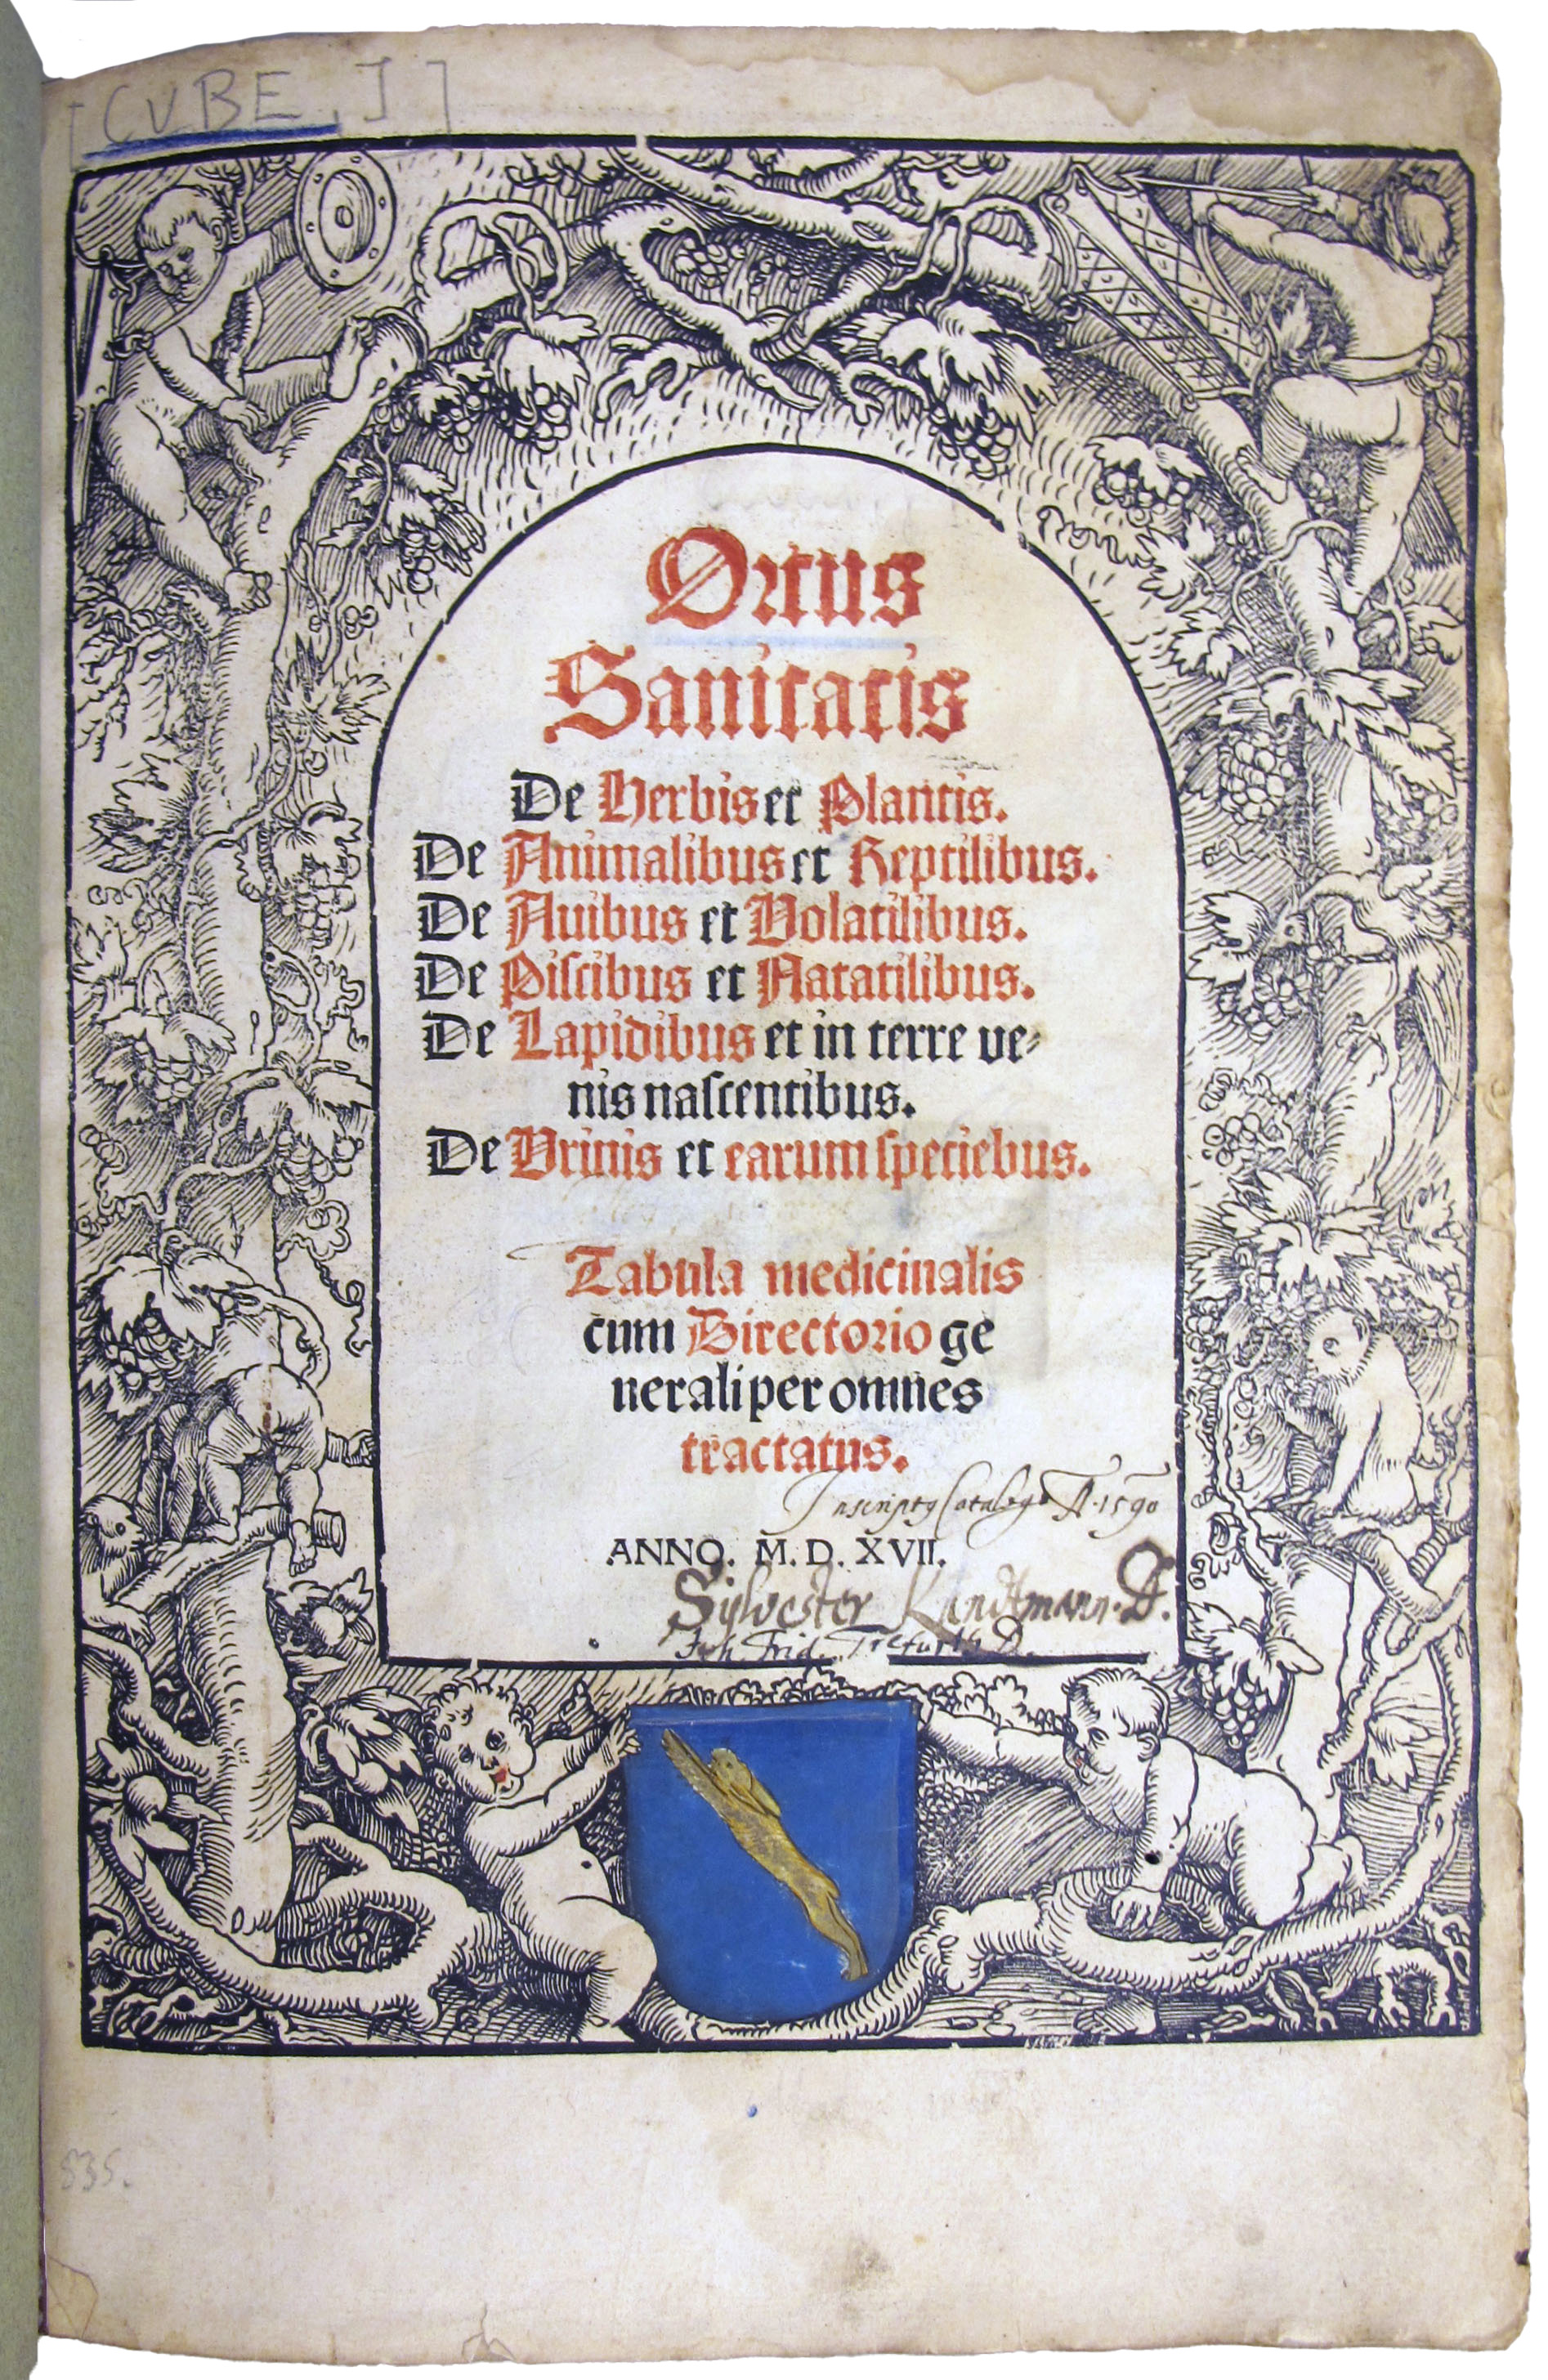 [CVBE, J]
Ortus
Sanitatis
De Herbis et Plantis.
De Animalibus et Reptilibus.
De Auibus et Volatilibus.
De Piscibus et Natatilibus.
De Lapidibus et in terre ve⸗
nis nascentibus.
De Vrinis et earum speciebus.
Tabula medicinalis
cum Directorio ge
nerali per omnes
tractatus.
Catalogo A. 1590
ANNO. M. D. XVII.
Sylvester D.
Joh. Frid. Trefurth D.
535.